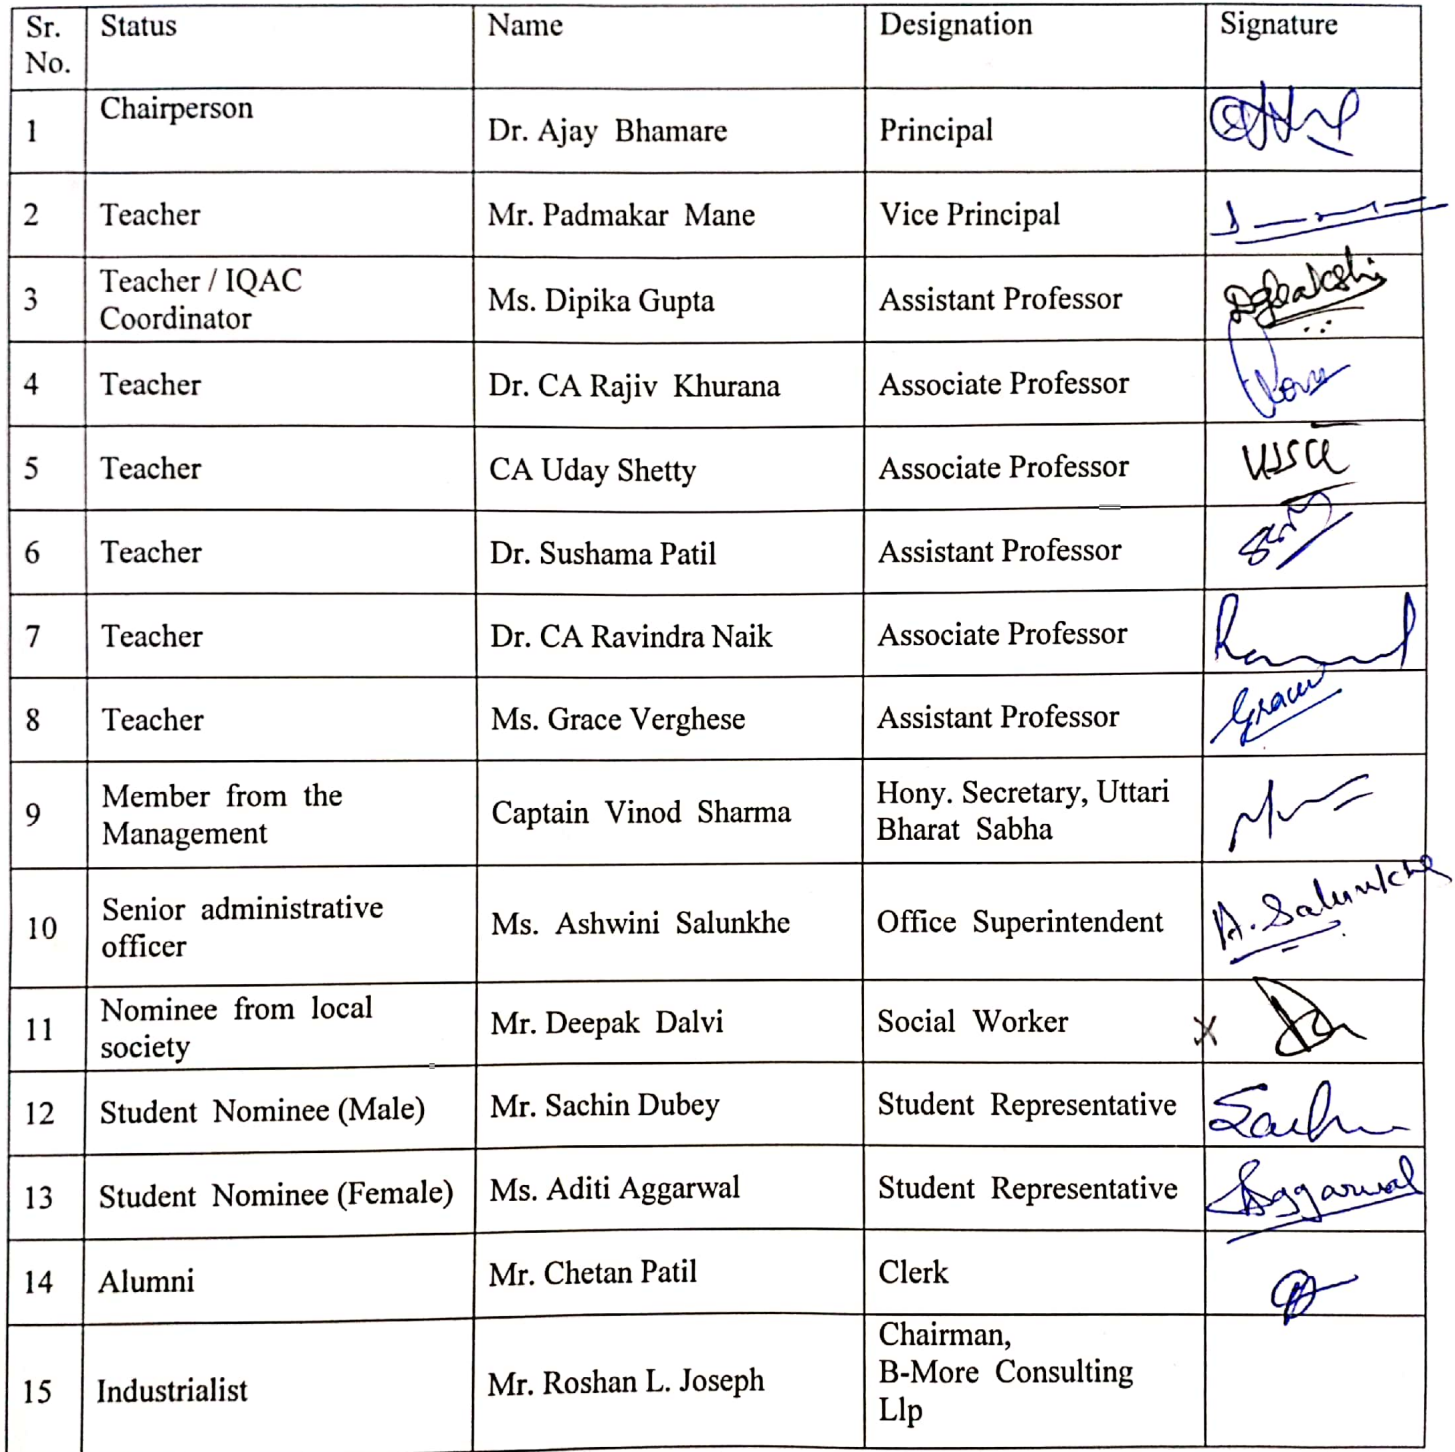 Sr. No. Status Name Designation Signature
1 Chairperson Dr. Ajay Bhamare Principal
2 Teacher Mr. Padmakar Mane Vice Principal
3 Teacher / IQAC Coordinator Ms. Dipika Gupta Assistant Professor
4 Teacher Dr. CA Rajiv Khurana Associate Professor
5 Teacher CA Uday Shetty Associate Professor
6 Teacher Dr. Sushama Patil Assistant Professor
7 Teacher Dr. CA Ravindra Naik Associate Professor
8 Teacher Ms. Grace Verghese Assistant Professor
9 Member from the Management Captain Vinod Sharma Hony. Secretary, Uttari Bharat Sabha
10 Senior administrative officer Ms. Ashwini Salunkhe Office Superintendent A. Salunkhe
11 Nominee from local society Mr. Deepak Dalvi Social Worker
12 Student Nominee (Male) Mr. Sachin Dubey Student Representative
13 Student Nominee (Female) Ms. Aditi Aggarwal Student Representative Aggarwal
14 Alumni Mr. Chetan Patil Clerk
15 Industrialist Mr. Roshan L. Joseph Chairman, B-More Consulting Llp